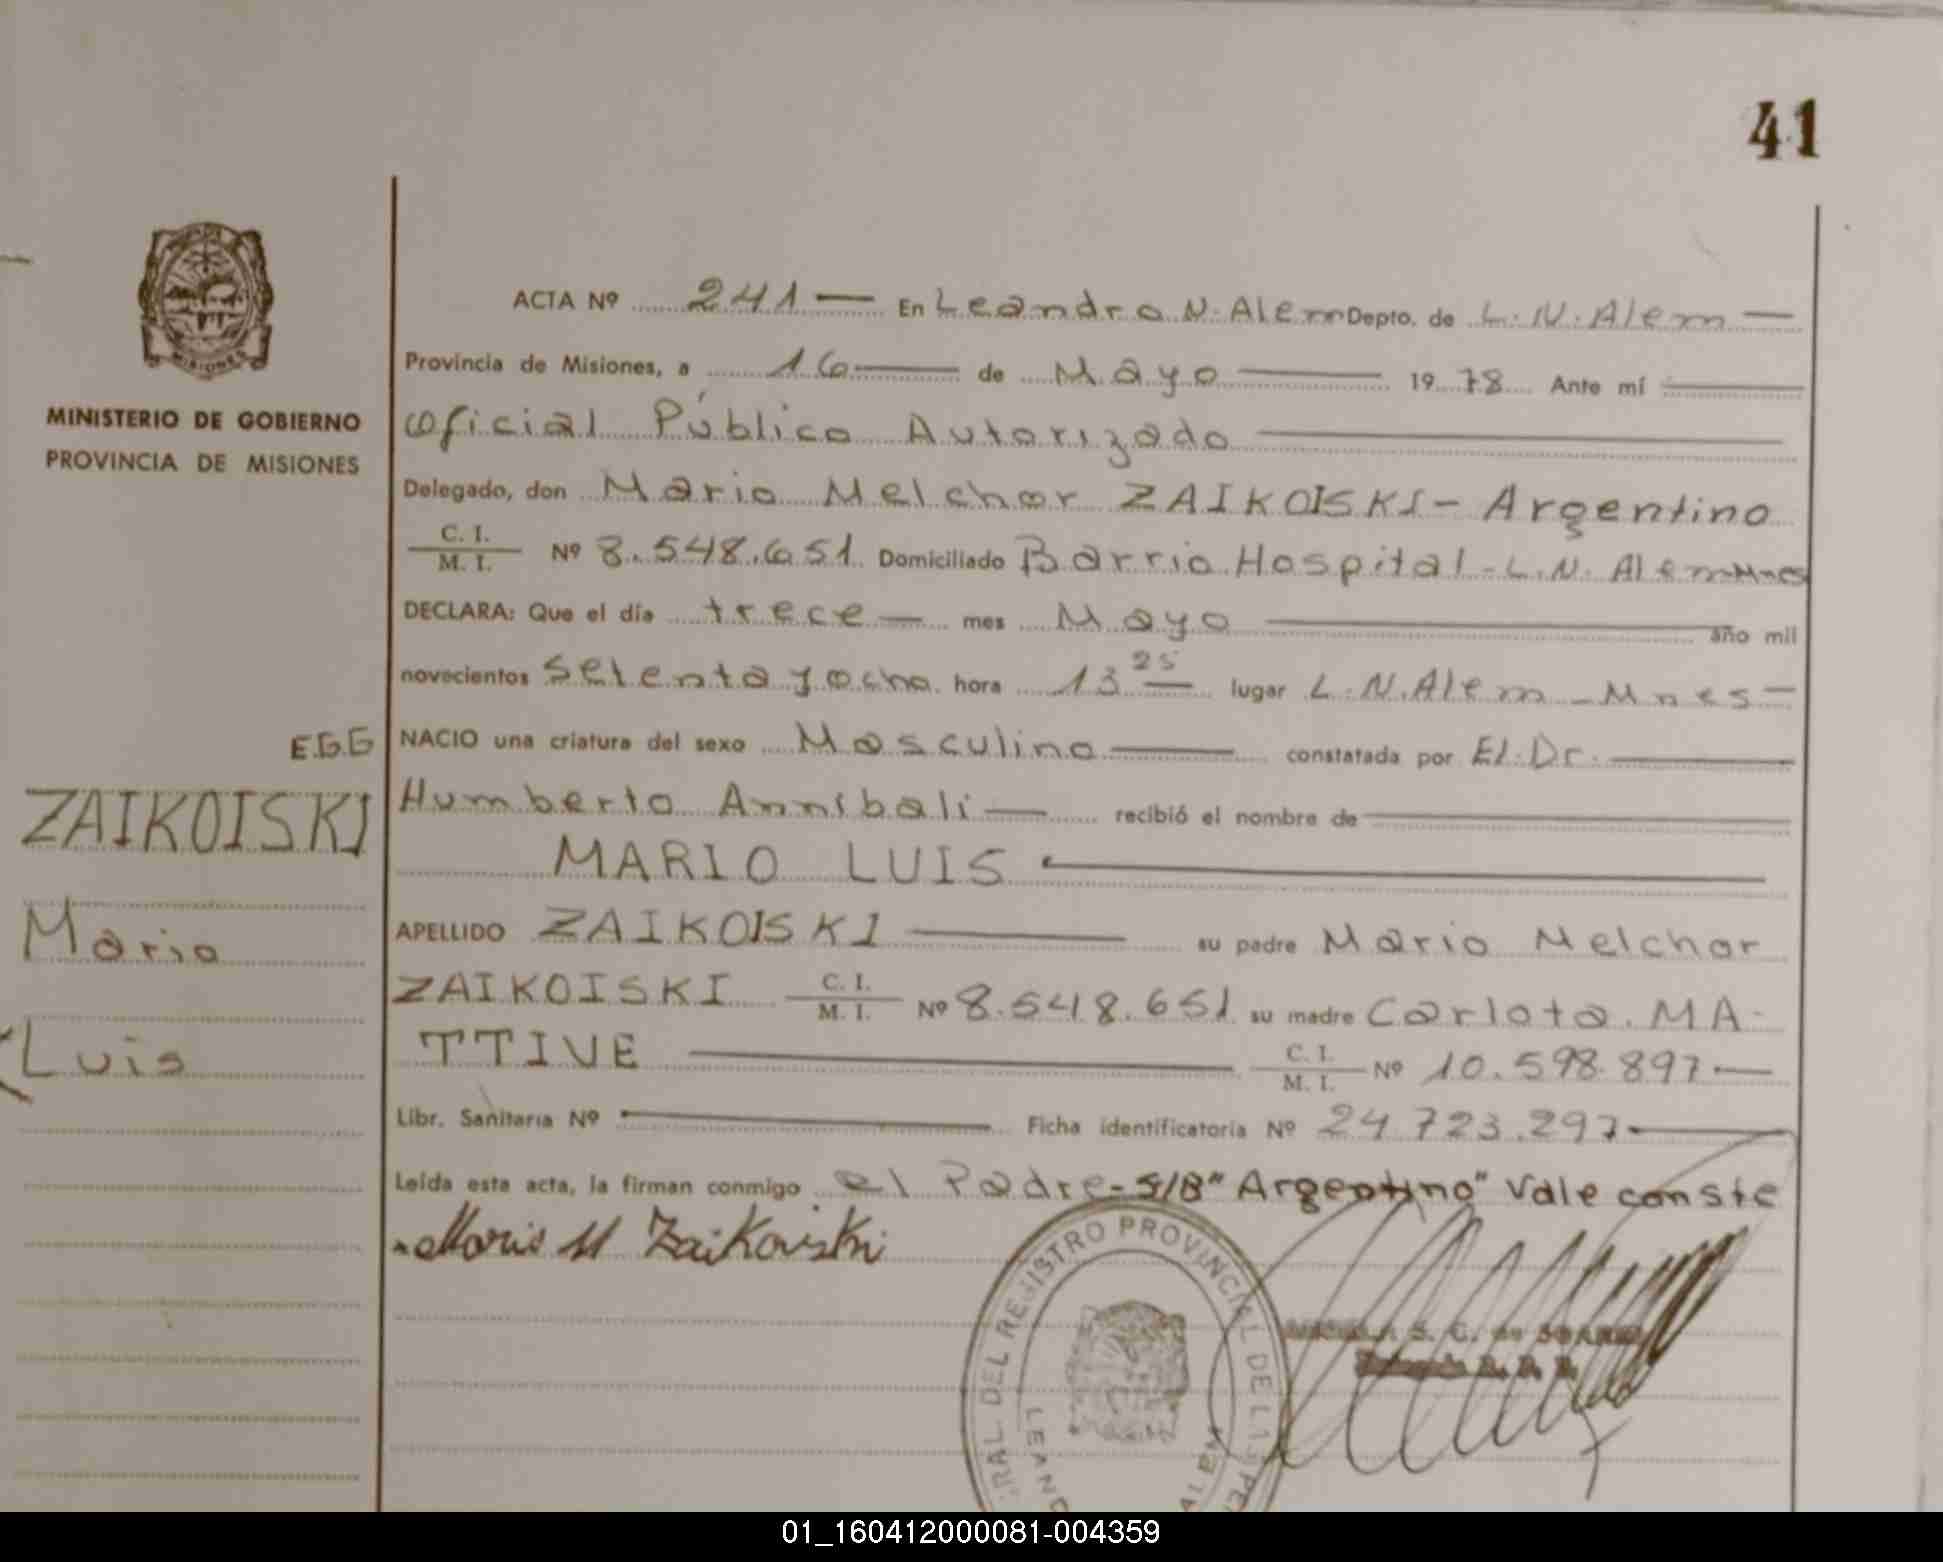 41
ACTA Nº 241 — En Leandro N. Alem Depto. de L. N. Alem —
Provincia de Misiones, a 16 — de Mayo — 1978 Ante mí
MINISTERIO DE GOBIERNO
PROVINCIA DE MISIONES
Oficial Público Autorizado —
Delegado, don Mario Melchor ZAIKOISKI - Argentino
C. I. / M. I. Nº 8.548.651. Domiciliado Barrio Hospital - L. N. Alem Mnes
DECLARA: Que el día trece — mes Mayo — año mil
novecientos setenta y ocho hora 13 25 — lugar L. N. Alem - Mnes —
E.G.G
NACIO una criatura del sexo Masculino — constatada por El. Dr. —
ZAIKOISKI
Humberto Annibali — recibió el nombre de —
MARIO LUIS —
Mario
APELLIDO ZAIKOISKI — su padre Mario Melchor
ZAIKOISKI C. I. / M. I. Nº 8.548.651 su madre Carlota MA-
Luis
TTIVE — C. I. / M. I. Nº 10.598.897 —
Libr. Sanitaria Nº — Ficha identificatoria Nº 24.723.297 —
Leída esta acta, la firman conmigo el Padre - S/B "Argentino" Vale conste
Mario M Zaikoiski
RAL DEL REGISTRO PROVINCIAL DE LAS PE
LEAND ALEM
S. G. de
01_160412000081-004359